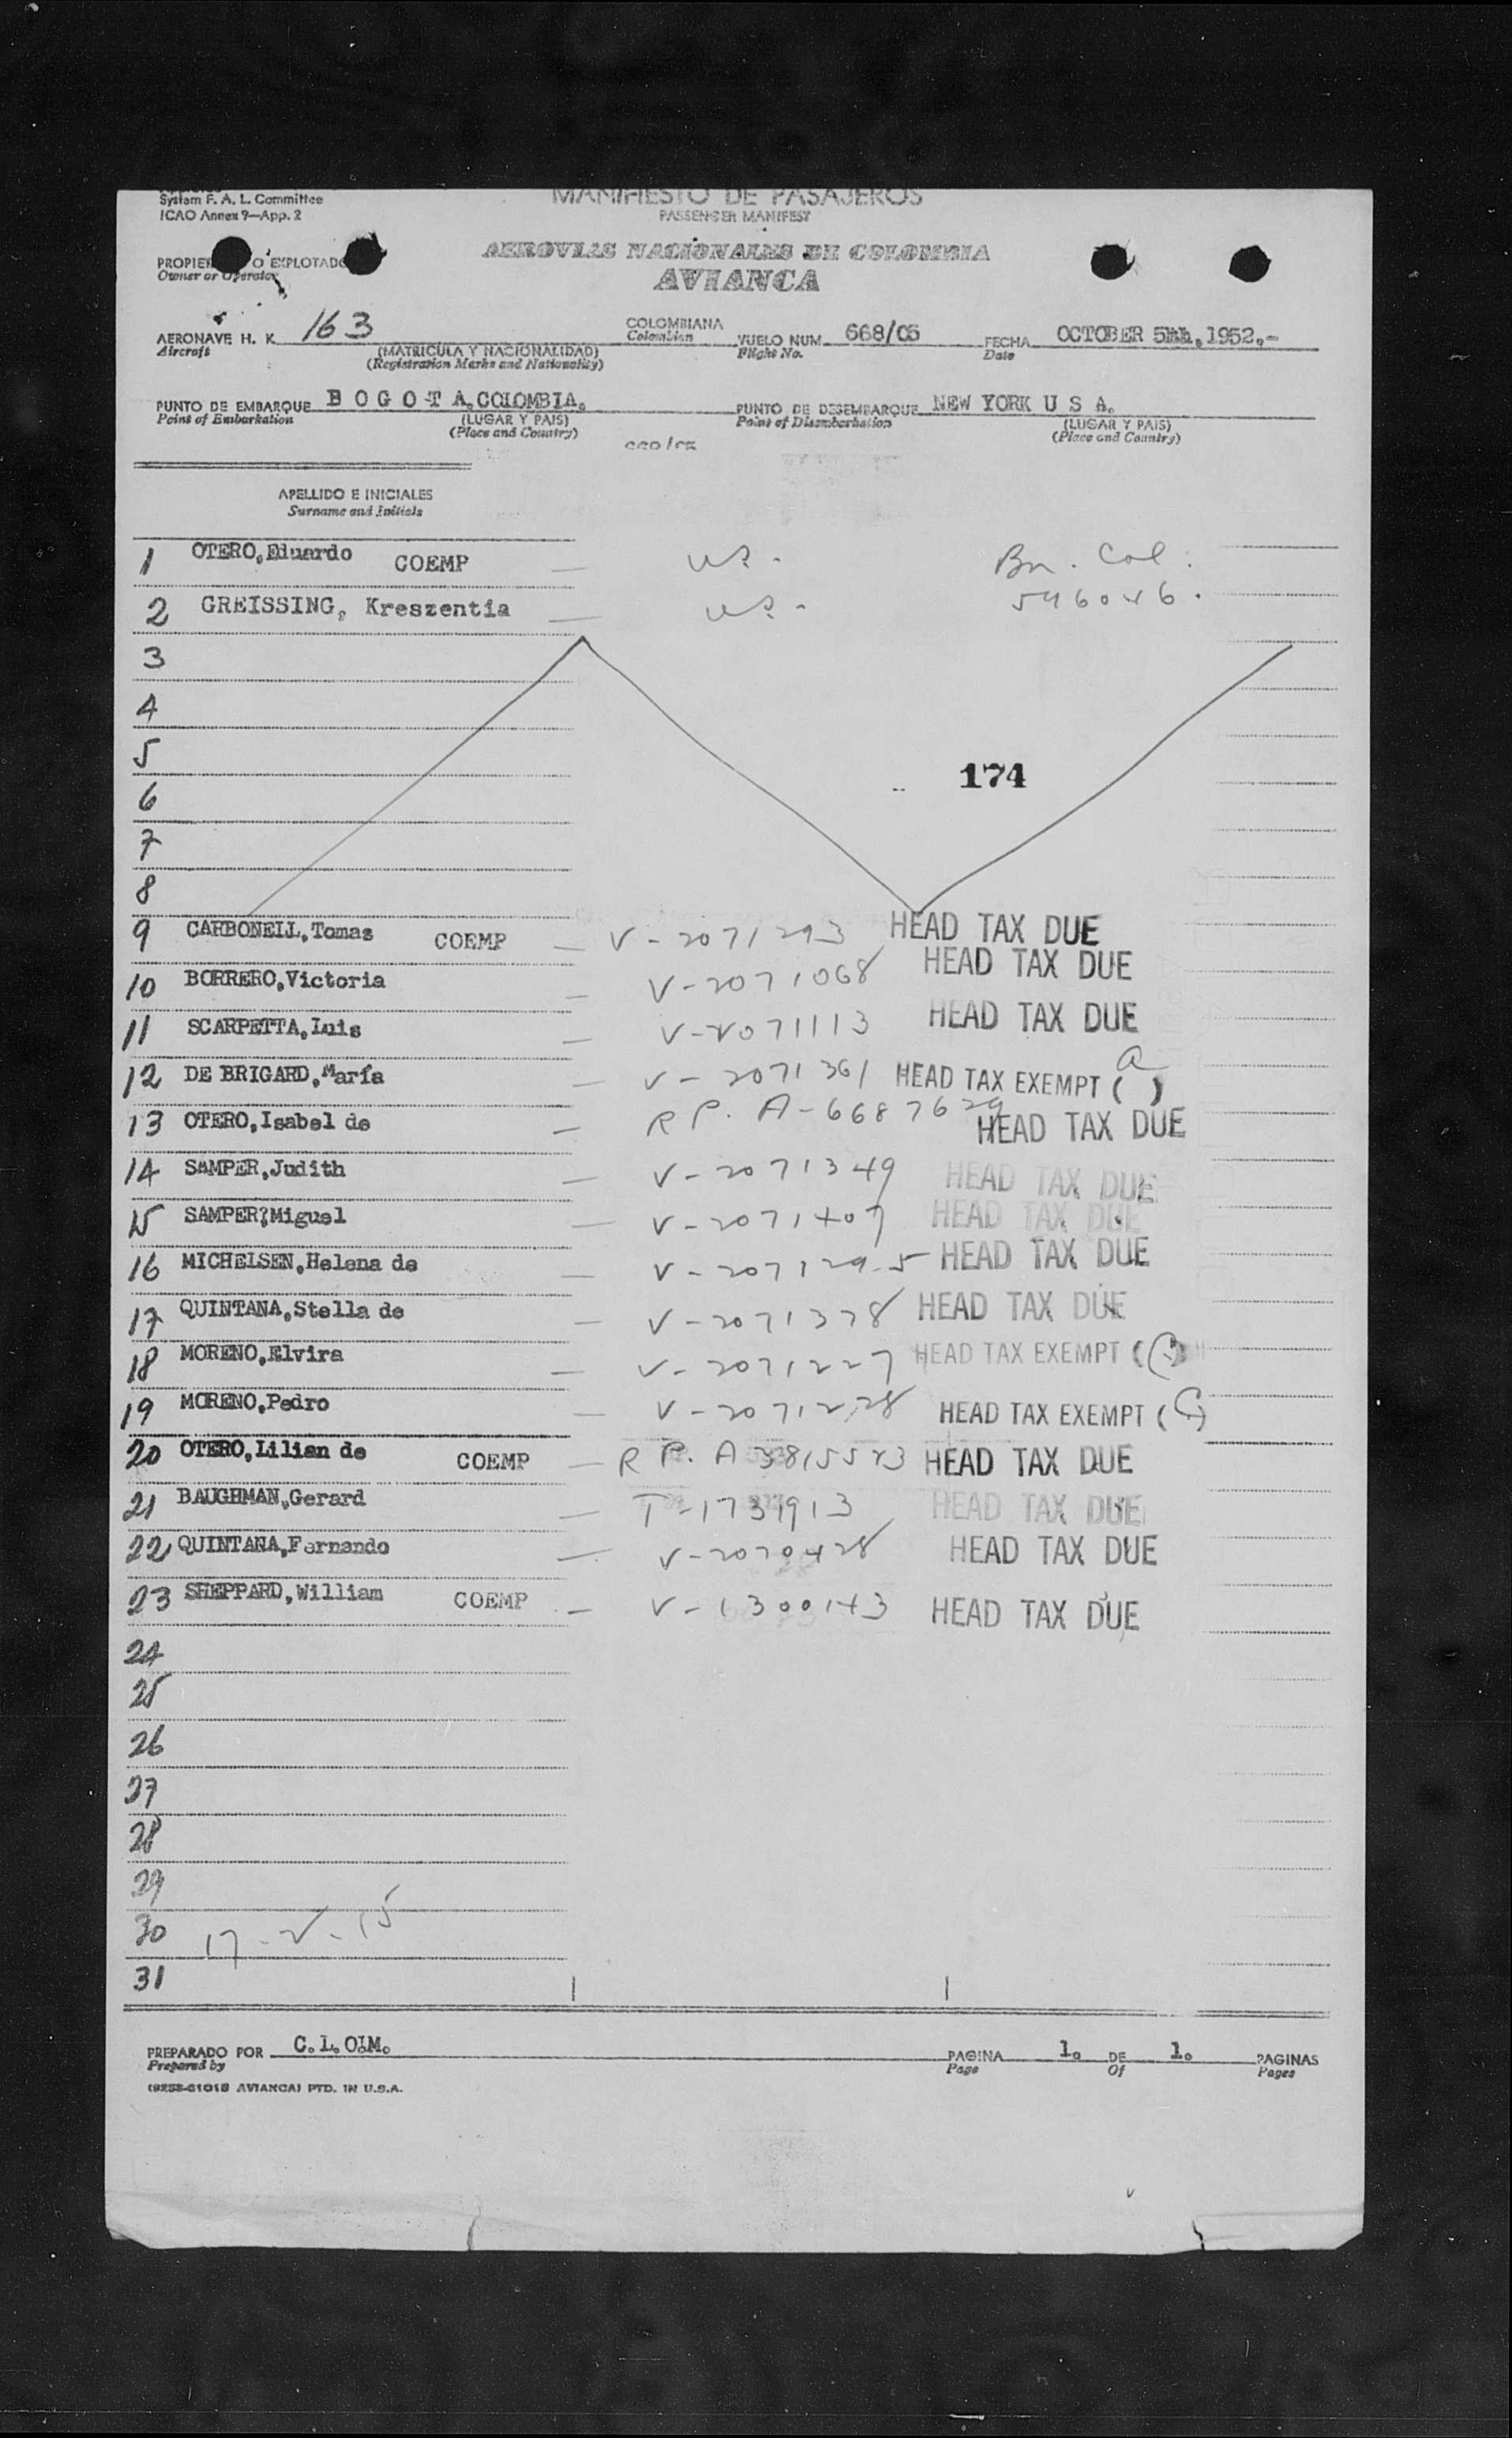 System F. A. L. Committee
ICAO Annex 9—App. 2
MANIFIESTO DE PASAJEROS
PASSENGER MANIFEST
AEROVIAS NACIONALES DE COLOMBIA
AVIANCA
O EXPLOTADO
Owner or Operator
AERONAVE H. K. 163 COLOMBIANA VUELO NUM. 668/05 FECHA OCTOBER 5th, 1952.-
Aircraft (MATRICULA Y NACIONALIDAD) Colombian Flight No. Date
(Registration Marks and Nationality)
PUNTO DE EMBARQUE B O G O T A, COLOMBIA. PUNTO DE DESEMBARQUE NEW YORK U S A.
Point of Embarkation (LUGAR Y PAIS) Point of Disembarkation (LUGAR Y PAIS)
(Place and Country) (Place and Country)
APELLIDO E INICIALES
Surname and Initials
1 OTERO, Eduardo COEMP — US. Bn. Col.
2 GREISSING, Kreszentia — US. 546046.
3
4
5
174
6
7
8
9 CARBONELL, Tomas COEMP — V-2071293 HEAD TAX DUE
10 BORRERO, Victoria — V-2071068 HEAD TAX DUE
11 SCARPETTA, Luis — V-2071113 HEAD TAX DUE
12 DE BRIGARD, María — V-2071361 HEAD TAX EXEMPT (a)
13 OTERO, Isabel de — R P. A-6687629 HEAD TAX DUE
14 SAMPER, Judith — V-2071349 HEAD TAX DUE
15 SAMPER, Miguel — V-2071407 HEAD TAX DUE
16 MICHELSEN, Helena de — V-2071295 HEAD TAX DUE
17 QUINTANA, Stella de — V-2071378 HEAD TAX DUE
18 MORENO, Elvira — V-2071227 HEAD TAX EXEMPT (C)
19 MORENO, Pedro — V-2071228 HEAD TAX EXEMPT (C)
20 OTERO, Lilian de COEMP — R P. A 3815523 HEAD TAX DUE
21 BAUGHMAN, Gerard — T-1731913 HEAD TAX DUE
22 QUINTANA, Fernando — V-2070428 HEAD TAX DUE
23 SHEPPARD, William COEMP — V-1300143 HEAD TAX DUE
24
25
26
27
28
29
30 17-2-15
31
PREPARADO POR C. L. O.M. PAGINA 1. DE 1. PAGINAS
Prepared by Page Of Pages
AVIANCA) PTD. IN U.S.A.